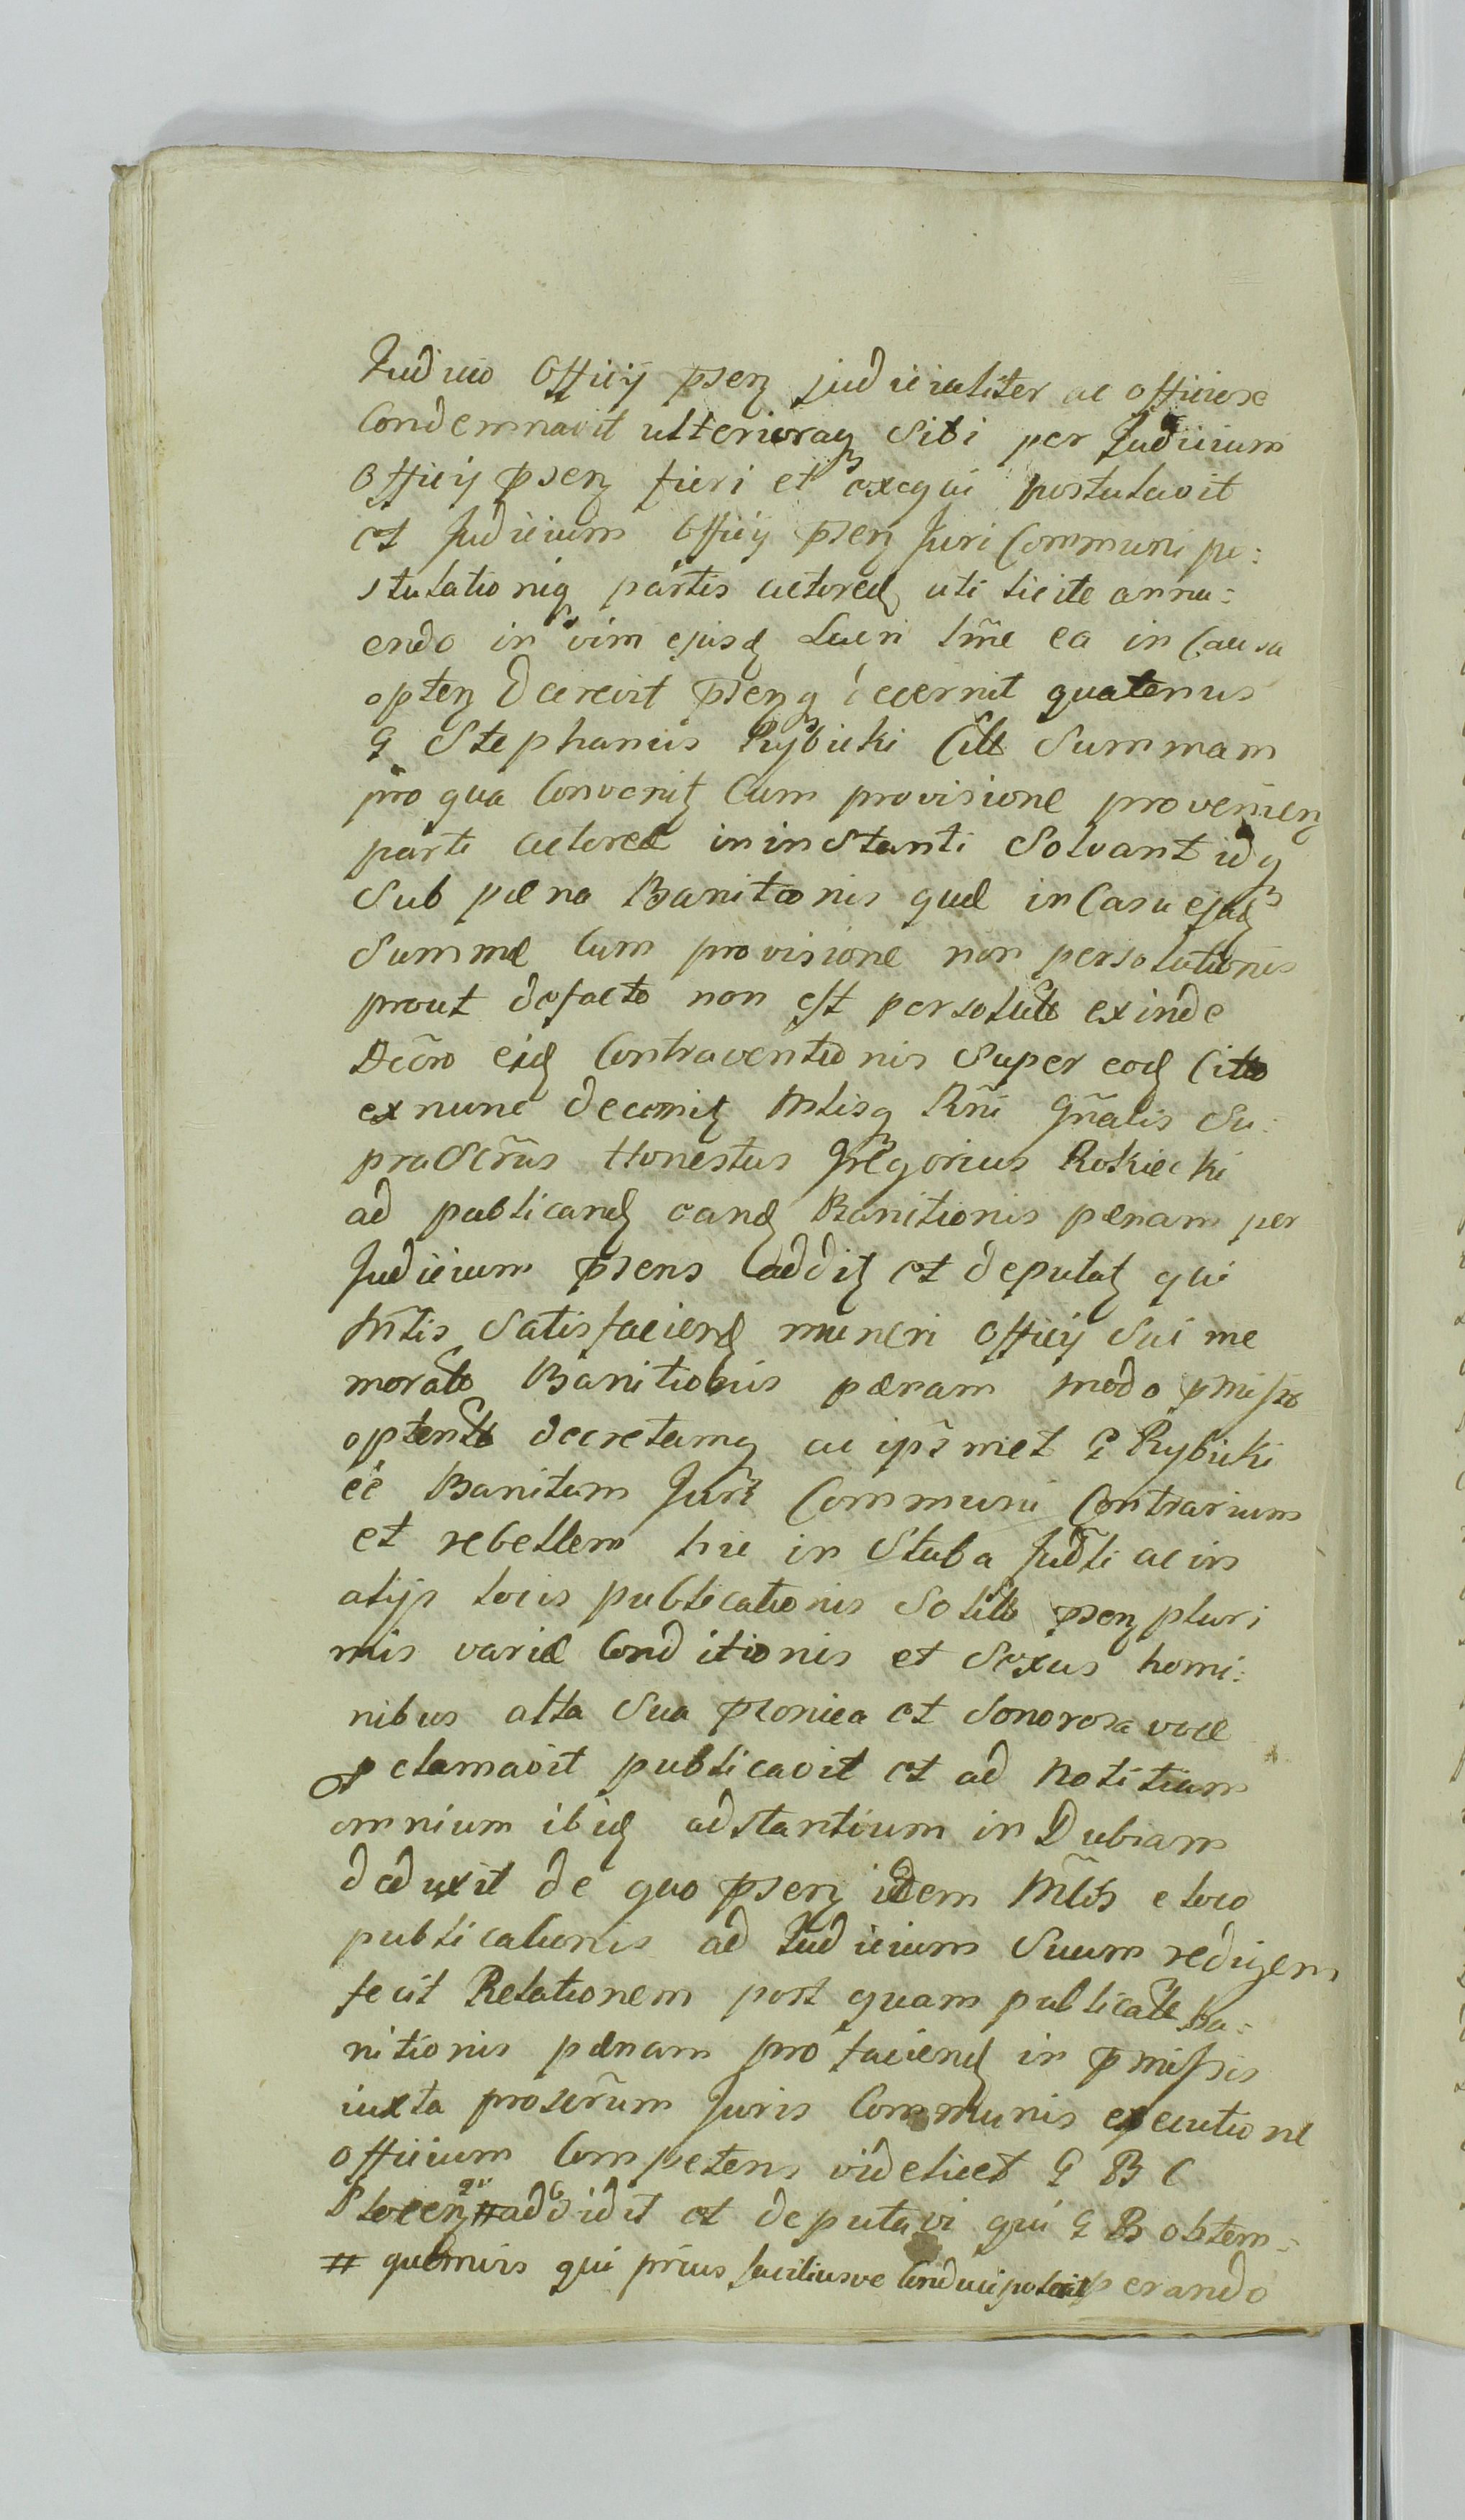 Judicio Officij pnsenz judicialiter ac officiose
Condemnavit ulterioraq sibi per Judicium
Officij psenz fieri et exequi postulavit
et Judicium Officij psenz Juri Communi po:
stulationiq partis actoreæ uti licite annu:
endo in vim ejusd Lucri tme ea in Causa
opten decrevit psenz q decernit quatenus
G Stephanus Rybicki Citt Summam
pro qua Convenit Cum provisione provenienz
parti actoreæ in instanti Solvant idq
Sub pæna Banitionis quæ in Casu ejusd
Summæ Cum provisione non persolutionis
prout defacto non est persoluta exinde
Dcõro ejusd Contraventionis Super eod Citto
exnunc decernit Mlisq Rñi Gñalis Su:
praScrus Honestus Gregorius Rokiecki
ad publicand eand Banitionis pænam per
Judicium psens addit et deputat qui
Mtis Satisfaciend muneri Officij Sui me
morata Banitionis pænam modo pmisso
optentam decretamq ac ipsmet G Rybicki
ee Banitum Juri Communi Contrarium
et rebellem hic in Stuba Judli ac in
alijs locis publicationis Solitis psenz pluri
mis variæ Conditionis et Sexus homi:
nibus alta Sua præconica et Sonorosa voce
pclamavit publicavit et ad notitiam
omnium ibid adstantium in Dubiam
deduxit de quo psenz idem Mtlis e loco
publicationis ad Judicium Suum rediens
fecit Relationem post quam publicatam Ba:
nitionis pænam pro faciend in pmissis
iuxta proscrum Juris Communis executione
officium Competens videlicet G B C
Plocenz # addidit et deputavi qui G B obtem:
# quemvis qui prius faciliusve Conduci poterit perando